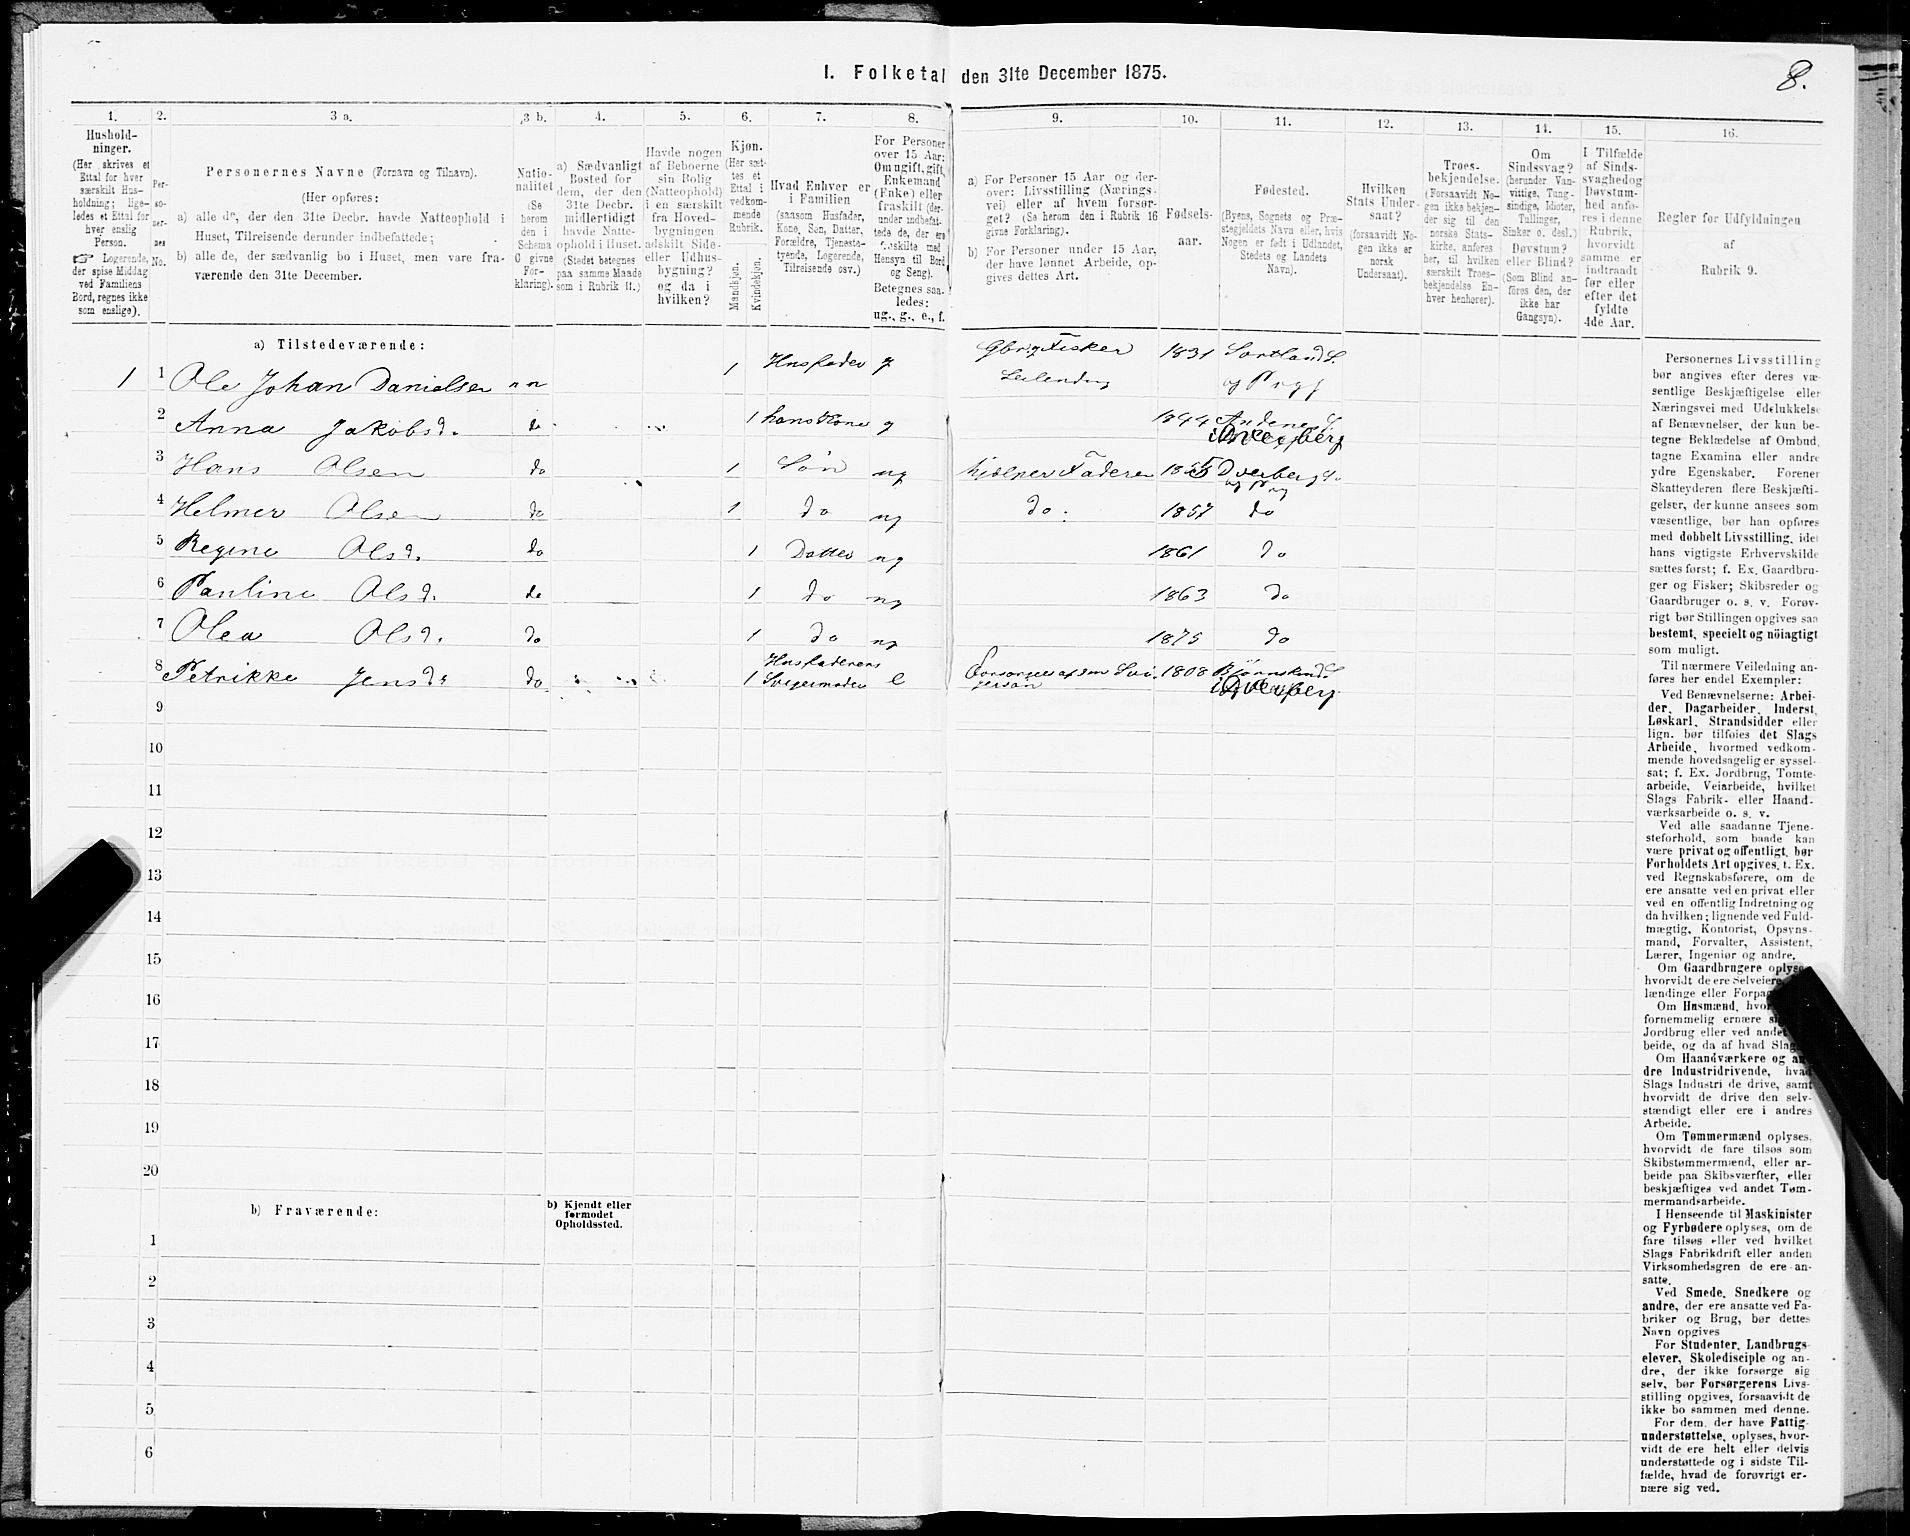 I. Folketal den 31te December 1875.
8.
1.
Hushold-
ninger.
(Her skrives et
Ettal for hver
særskilt Hus-
holdning; lige-
ledes et Ettal for
hver enslig
Person.
☞ Logerende,
der spise Middag
ved Familiens
Bord, regnes ikke
som enslige).
2.
Per-
so-
ner-
nes
No.
3 a.
Personernes Navne (Fornavn og Tilnavn).
(Her opføres:
a) alle de, der den 31te Decbr. havde Natteophold i
Huset, Tilreisende derunder indbefattede;
b) alle de, der sædvanlig bo i Huset, men vare fra-
værende den 31te December.
3 b.
Natio-
nalitet
(Se
herom
den i
Schema
C givne
For-
klaring).
4.
a) Sædvanligt
Bosted for
dem, der den
31te Decbr.
midlertidigt
havde Natte-
ophold i Huset.
(Stedet betegnes
paa samme Maade
som i Rubrik 11.)
5.
Havde nogen
af Beboerne
sin Bolig
(Natteophold)
i en særskilt
fra Hoved-
bygningen
adskilt Side-
eller Udhus-
bygning?
og da i
hvilken?
6.
Kjøn.
(Her sæt-
tes et
Ettal i
vedkom-
mende
Rubrik.
Mandkjøn.
Kvindekjøn.
7.
Hvad Enhver er
i Familien
(saasom Husfader,
Kone, Søn, Datter,
Forældre, Tjeneste-
tyende, Logerende,
Tilreisende osv.)
8.
For Personer
over 15 Aar:
Om ugift, gift,
Enkemand
(Enke) eller
fraskilt (der-
under indbefat-
tede de, der ere
fraskilte med
Hensyn til Bord
og Seng).
Betegnes saa-
ledes:
ug., g., e., f.
9.
a) For Personer 15 Aar og der-
over: Livsstilling (Nærings-
vei) eller af hvem forsør-
get? (Se herom den i Rubrik 16
givne Forklaring).
b) For Personer under 15 Aar,
der have lønnet Arbeide, op-
gives dettes Art.
10.
Fødsels-
aar.
11.
Fødested.
(Byens, Sognets og Præ-
stegjeldets Navn eller, hvis
Nogen er født i Udlandet,
Stedets og Landets
Navn).
12.
Hvilken
Stats Under-
saat?
(forsaavidt No-
gen ikke er
norsk
Undersaat).
13.
Troes-
bekjendelse.
(Forsaavidt No-
gen ikke bekjen-
der sig til den
norske Stats-
kirke, anføres
her, til hvilken
særskilt Troes-
bekjendelse En-
hver henhører).
14.
Om
Sindssvag?
(herunder Van-
vittige, Tung-
sindige, Idioter,
Tullinger,
Sinker o. desl.)
Døvstum?
eller Blind?
(Som Blind an-
føres den, der
ikke har
Gangsyn).
15.
I Tilfælde
af Sinds-
svaghed og
Døvstum-
hed anfø-
res i denne
Rubrik,
hvorvidt
samme er
indtraadt
før eller
efter det
fyldte
4de Aar.
16.
Regler for Udfyldningen
af
Rubrik 9.
a) Tilstedeværende:
1 1 Ole Johan Danielsen n n 1 Husfader g Gbr og Fisker 1831 Sortland S.
Leilending og Prgj
2 Anna Jakobsd. do 1 hans Kone g 1844 Andenes S.
Dverberg
3 Hans Olsen do 1 Søn ug hjelper Faderen 1855 Dverberg S.
og Prg
4 Helmer Olsen do 1 do ug do. 1857 do
5 Regine Olsd. do 1 Datter ug 1861 do
6 Pauline Olsd. do 1 do ug 1863 do
7 Olea Olsd. do 1 do ug 1875 do
8 Petrikke Jensd. do 1 Husfaderens
Svigermoder e Forsørges af sin Svi-
gersøn 1808 Bjørnskind S.
Dverberg
9
10
11
12
13
14
15
16
17
18
19
20
b) Fraværende:
b) Kjendt eller
formodet
Opholdssted.
1
2
3
4
5
6
Personernes Livsstilling
bør angives efter deres væ-
sentlige Beskjæftigelse eller
Næringsvei med Udelukkelse
af Benævnelser, der kun be-
tegne Beklædelse af Ombud,
tagne Examina eller andre
ydre Egenskaber. Forener
Skatteyderen flere Beskjæfti-
gelser, der kunne ansees som
væsentlige, bør han opføres
med dobbelt Livsstilling, idet
hans vigtigste Erhvervskilde
sættes først; f. Ex. Gaardbru-
ger og Fisker; Skibsreder og
Gaardbruger o. s. v. Forøv-
rigt bør Stillingen opgives saa
bestemt, specielt og nöiagtigt
som muligt.
Til nærmere Veiledning an-
føres her endel Exempler:
Ved Benævnelserne: Arbei-
der, Dagarbeider, Inderst,
Løskarl, Strandsidder eller
lign. bør tilføies det Slags
Arbeide, hvormed vedkom-
mende hovedsagelig er syssel-
sat; f. Ex. Jordbrug, Tomte-
arbeide, Veiarbeide, hvilket
Slags Fabrik- eller Haand-
værksarbeide o. s. v.
Ved alle saadanne Tjene-
steforhold, som baade kan
være privat og offentligt, bør
Forholdets Art opgives, t. Ex.
ved Regnskabsførere, om de
ere ansatte ved en privat eller
ved en offentlig Indretning og
da hvilken; lignende ved Fuld-
mægtig, Kontorist, Opsyns-
mand, Forvalter, Assistent,
Lærer, Ingeniør og andre.
Om Gaardbrugere oplyse
hvorvidt de ere Selveiere,
lændinge eller Forpag
Om Husmænd, hvor
fornemmelig ernære si
Jordbrug eller ved andet
beide, og da af hvad Slag
Om Haandværkere og an-
dre Industridrivende, hvad
Slags Industri de drive, samt
hvorvidt de drive den selv-
stændigt eller ere i andres
Arbeide.
Om Tømmermænd oplyses,
hvorvidt de fare tilsøs som
Skibstømmermænd, eller ar-
beide paa Skibsværfter, eller
beskjæftiges ved andet Tøm-
mermandsarbeide.
I Henseende til Maskinister
og Fyrbødere oplyses, om de
fare tilsøs eller ved hvilket
Slags Fabrikdrift eller anden
Virksomhedsgren de ere an-
satte.
Ved Smede, Snedkere og
andre, der ere ansatte ved Fa-
briker og Brug, bør dettes
Navn opgives
For Studenter, Landbrugs-
elever, Skoledisciple og an-
dre, der ikke forsørge sig
selv, bør Forsørgerens Livs-
stilling opgives, forsaavidt de
ikke bo sammen med denne.
For dem, der have Fattig-
understøttelse, oplyses, hvor-
vidt de ere helt eller delvis
understøttede og i sidste Til-
fælde, hvad de forøvrigt er-
nære sig ved.